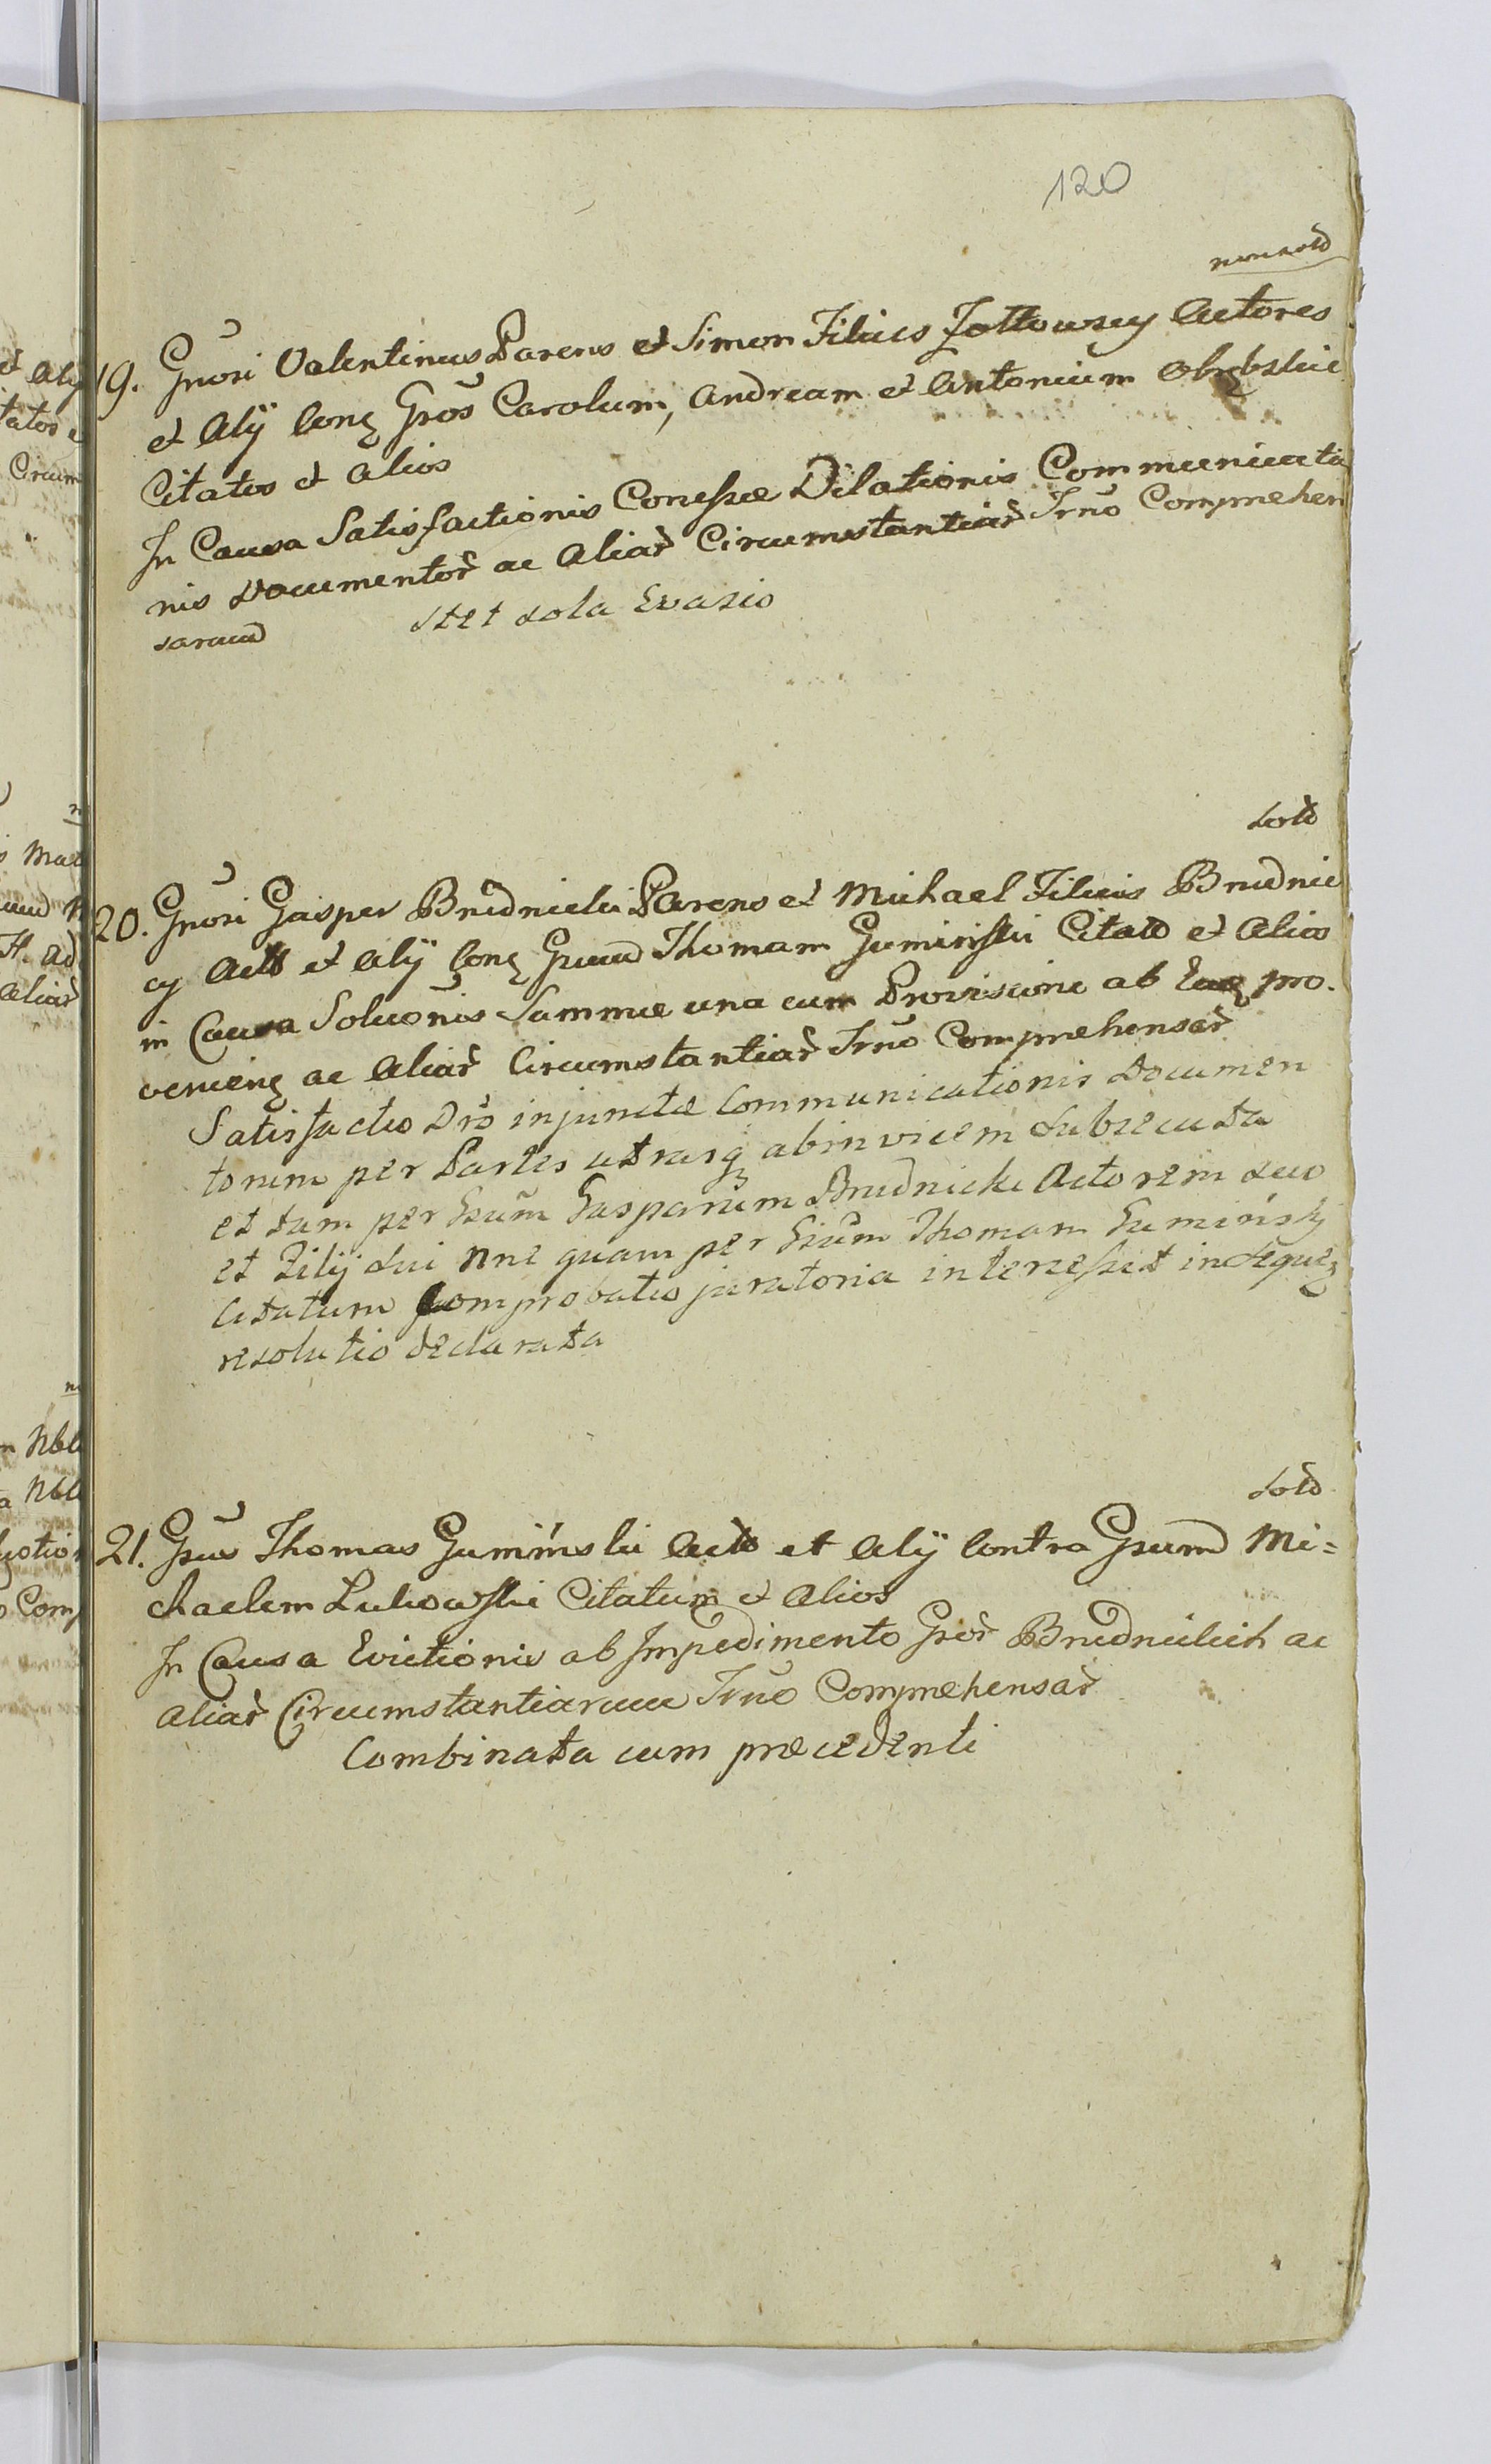 120
non sold
19. Gnosi Valentinus Parens et Simon Filius Zołtowscy Actores
et Alij Conq Gnos Carolum, Andream et Antonium Obrębskie
Citatos et Alios
In Causa Satisfactionis Concessæ Dilationis Communicatio
nis Documentor ac Aliar Circumstantiar Trno Comprehen
sarum
Stet sola Evasio
sold
20. Gnosi Gasper Brudnicki Parens et Michael Filius Brudnic
cy Act et Alij Conq Gsum Thomam Guminski Citat et Alios
in Causa Soluonis Summæ una cum Provisione ab Eaq pro.
venienq ac Aliar Circumstantiar Trno Comprehensar
Satisfactio Dris injunctæ Communicationis Documen
torum per Partes utrasq abinvicem subsecuta
et tum per Gsum Gasparum Brudnicki Actorem suo
et Filij sui nne quam per Gsum Thomam Gumińskj
Citatum Comprobatio juratoria interesset indequeq
resolutio declarata
sold
21. Gsus Thomas Gumiński Act et Alij Contra Gsum Mi=
chaelem Lukowski Citatum et Alios
In Causa Evictionis ab Impedimento Gsor Brudnickich ac
Aliar Circumstantiarum Trno Comprehensar
Combinata cum præcedenti